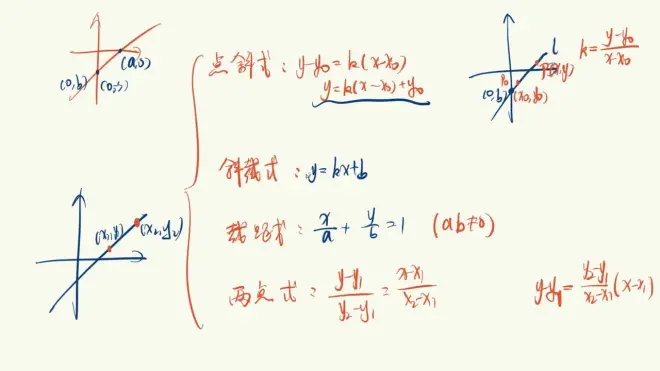 (a,0)
(0,b)
(0,b)
点斜式：y-y₀=k(x-x₀)
y=k(x-x₀)+y₀
l
k=\frac{y-y₀}{x-x₀}
P(x,y)
P₀
(0,b)
(x₀,y₀)
斜截式：y=kx+b
(x₁,y₁)
(x₂,y₂)
截距式：\frac{x}{a}+\frac{y}{b}=1 (ab≠0)
两点式：\frac{y-y₁}{y₂-y₁}=\frac{x-x₁}{x₂-x₁}
y-y₁=\frac{y₂-y₁}{x₂-x₁}(x-x₁)